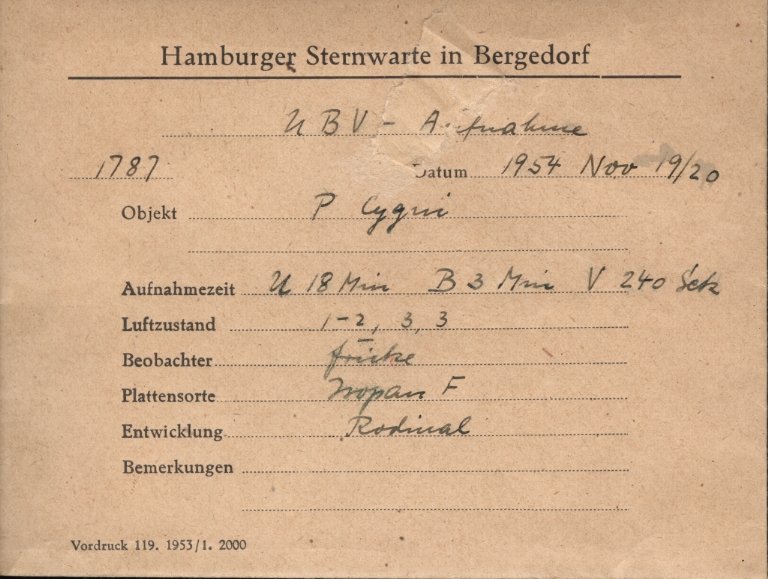 Hamburger Sternwarte in Bergedorf
UBV - Aufnahme
1787 Datum 1954 Nov 19/20
Objekt P Cygni
Aufnahmezeit U 18 Min B 3 Min V 240 Sek
Luftzustand 1-2, 3, 3
Beobachter
Plattensorte Isopan F
Entwicklung Rodinal
Bemerkungen
Vordruck 119. 1953/1. 2000